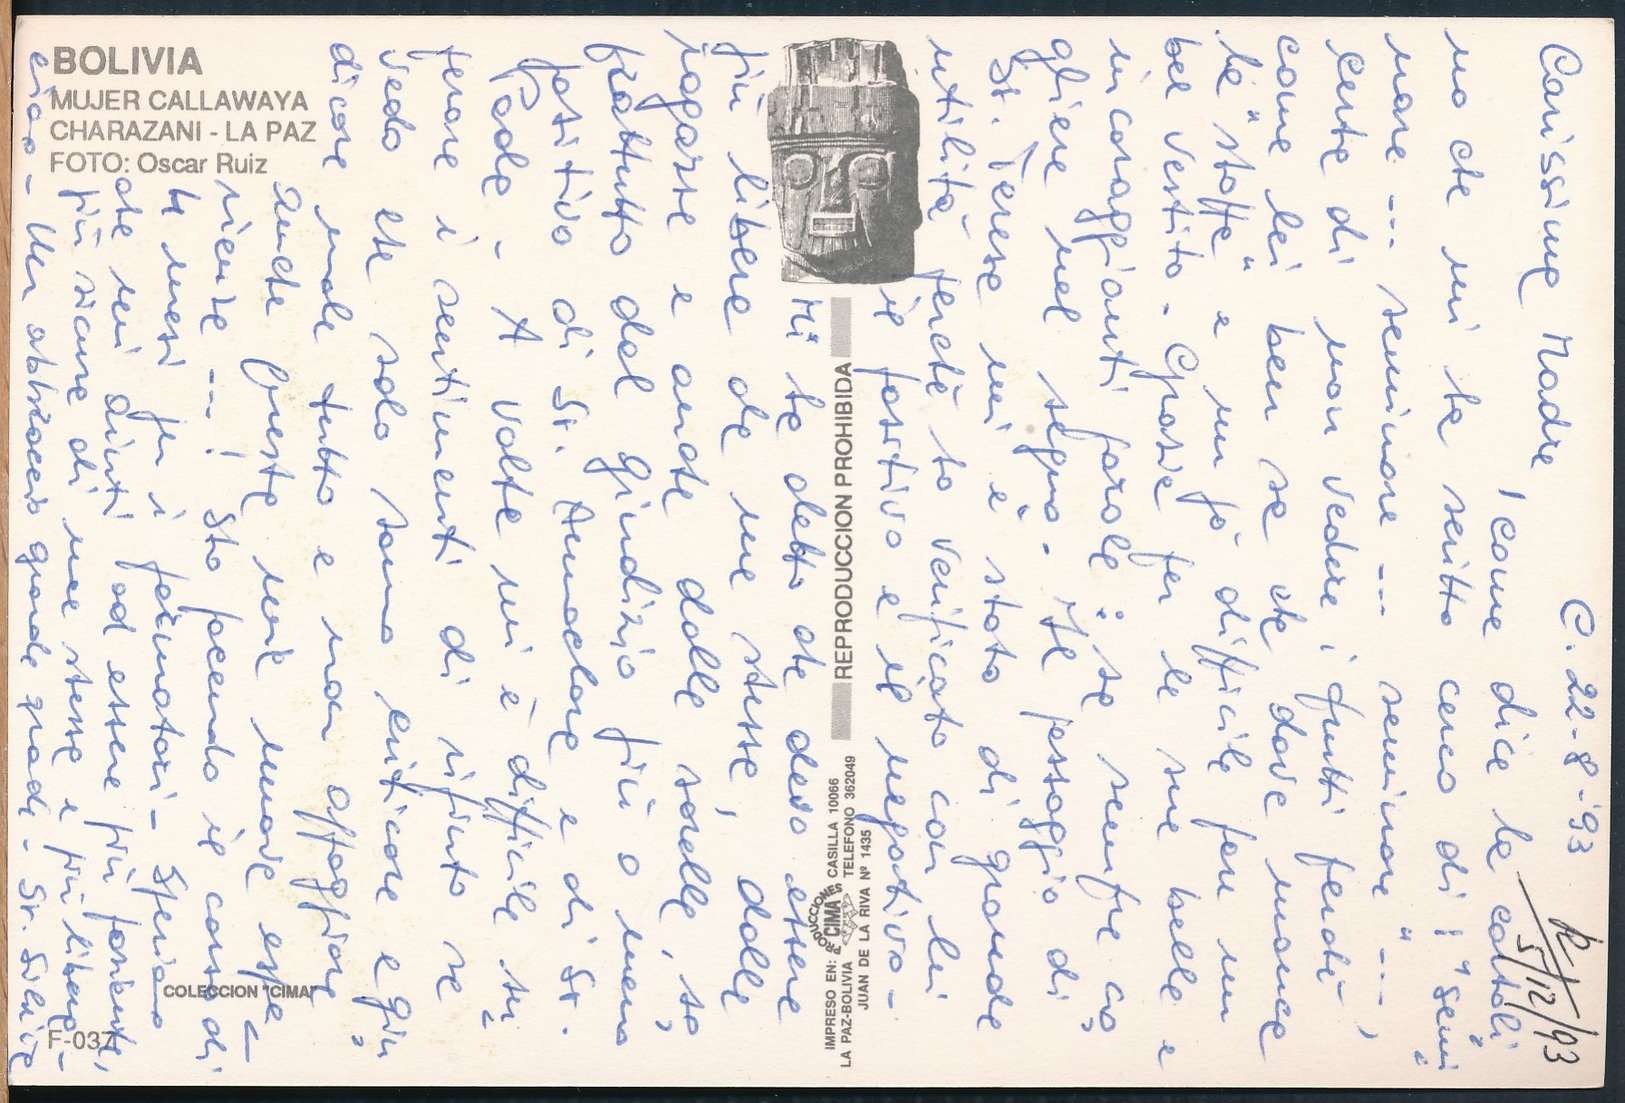 BOLIVIA
MUJER CALLAWAYA
CHARAZANI - LA PAZ
FOTO: Oscar Ruiz
REPRODUCCION PROHIBIDA
IMPRESO EN: PRODUCCIONES CIMA CASILLA 10066
LA PAZ-BOLIVIA TELEFONO 362049
JUAN DE LA RIVA Nº 1435
COLECCION "CIMA"
F-037
C. 22-8-'93
R/
5/12/93
Carissima Madre,
come dice la cartoli=
na che mi ha scritto cerco di: "Semi=
nare --- seminare --- seminare" ---,
certa di non vedere i frutti perciò
come lei ben sa che dove manca
la "stoffa" e un pò difficile fare un
bel vestito. Grazie per le sue belle e
incoraggianti parole: sa sempre co=
gliere nel segno. Il passaggio di
Sr. Teresa mi è stato di grande
utilità perchè ho verificato con lei
il positivo e il negativo -
Mi ha detto che devo essere
più libera da me stessa, dalle
ragazze e anche dalle sorelle, so=
prattutto dal giudizio più o meno
positivo di Sr. Amaclara e di Sr.
Paola - A volte mi è difficile su=
perare i sentimenti di rifiuto se
vedo che solo sanno criticare e giu=
dicare male tutto e non appoggiare
anche queste mie nuove espe=
rienze ---! Sto facendo il corso di
4 mesi per i formatori - Spero
che mi aiuti ad essere più paziente,
più sicura di me stessa e più libera -
ciao - Un abbraccio grande grande - Sr. Silvia